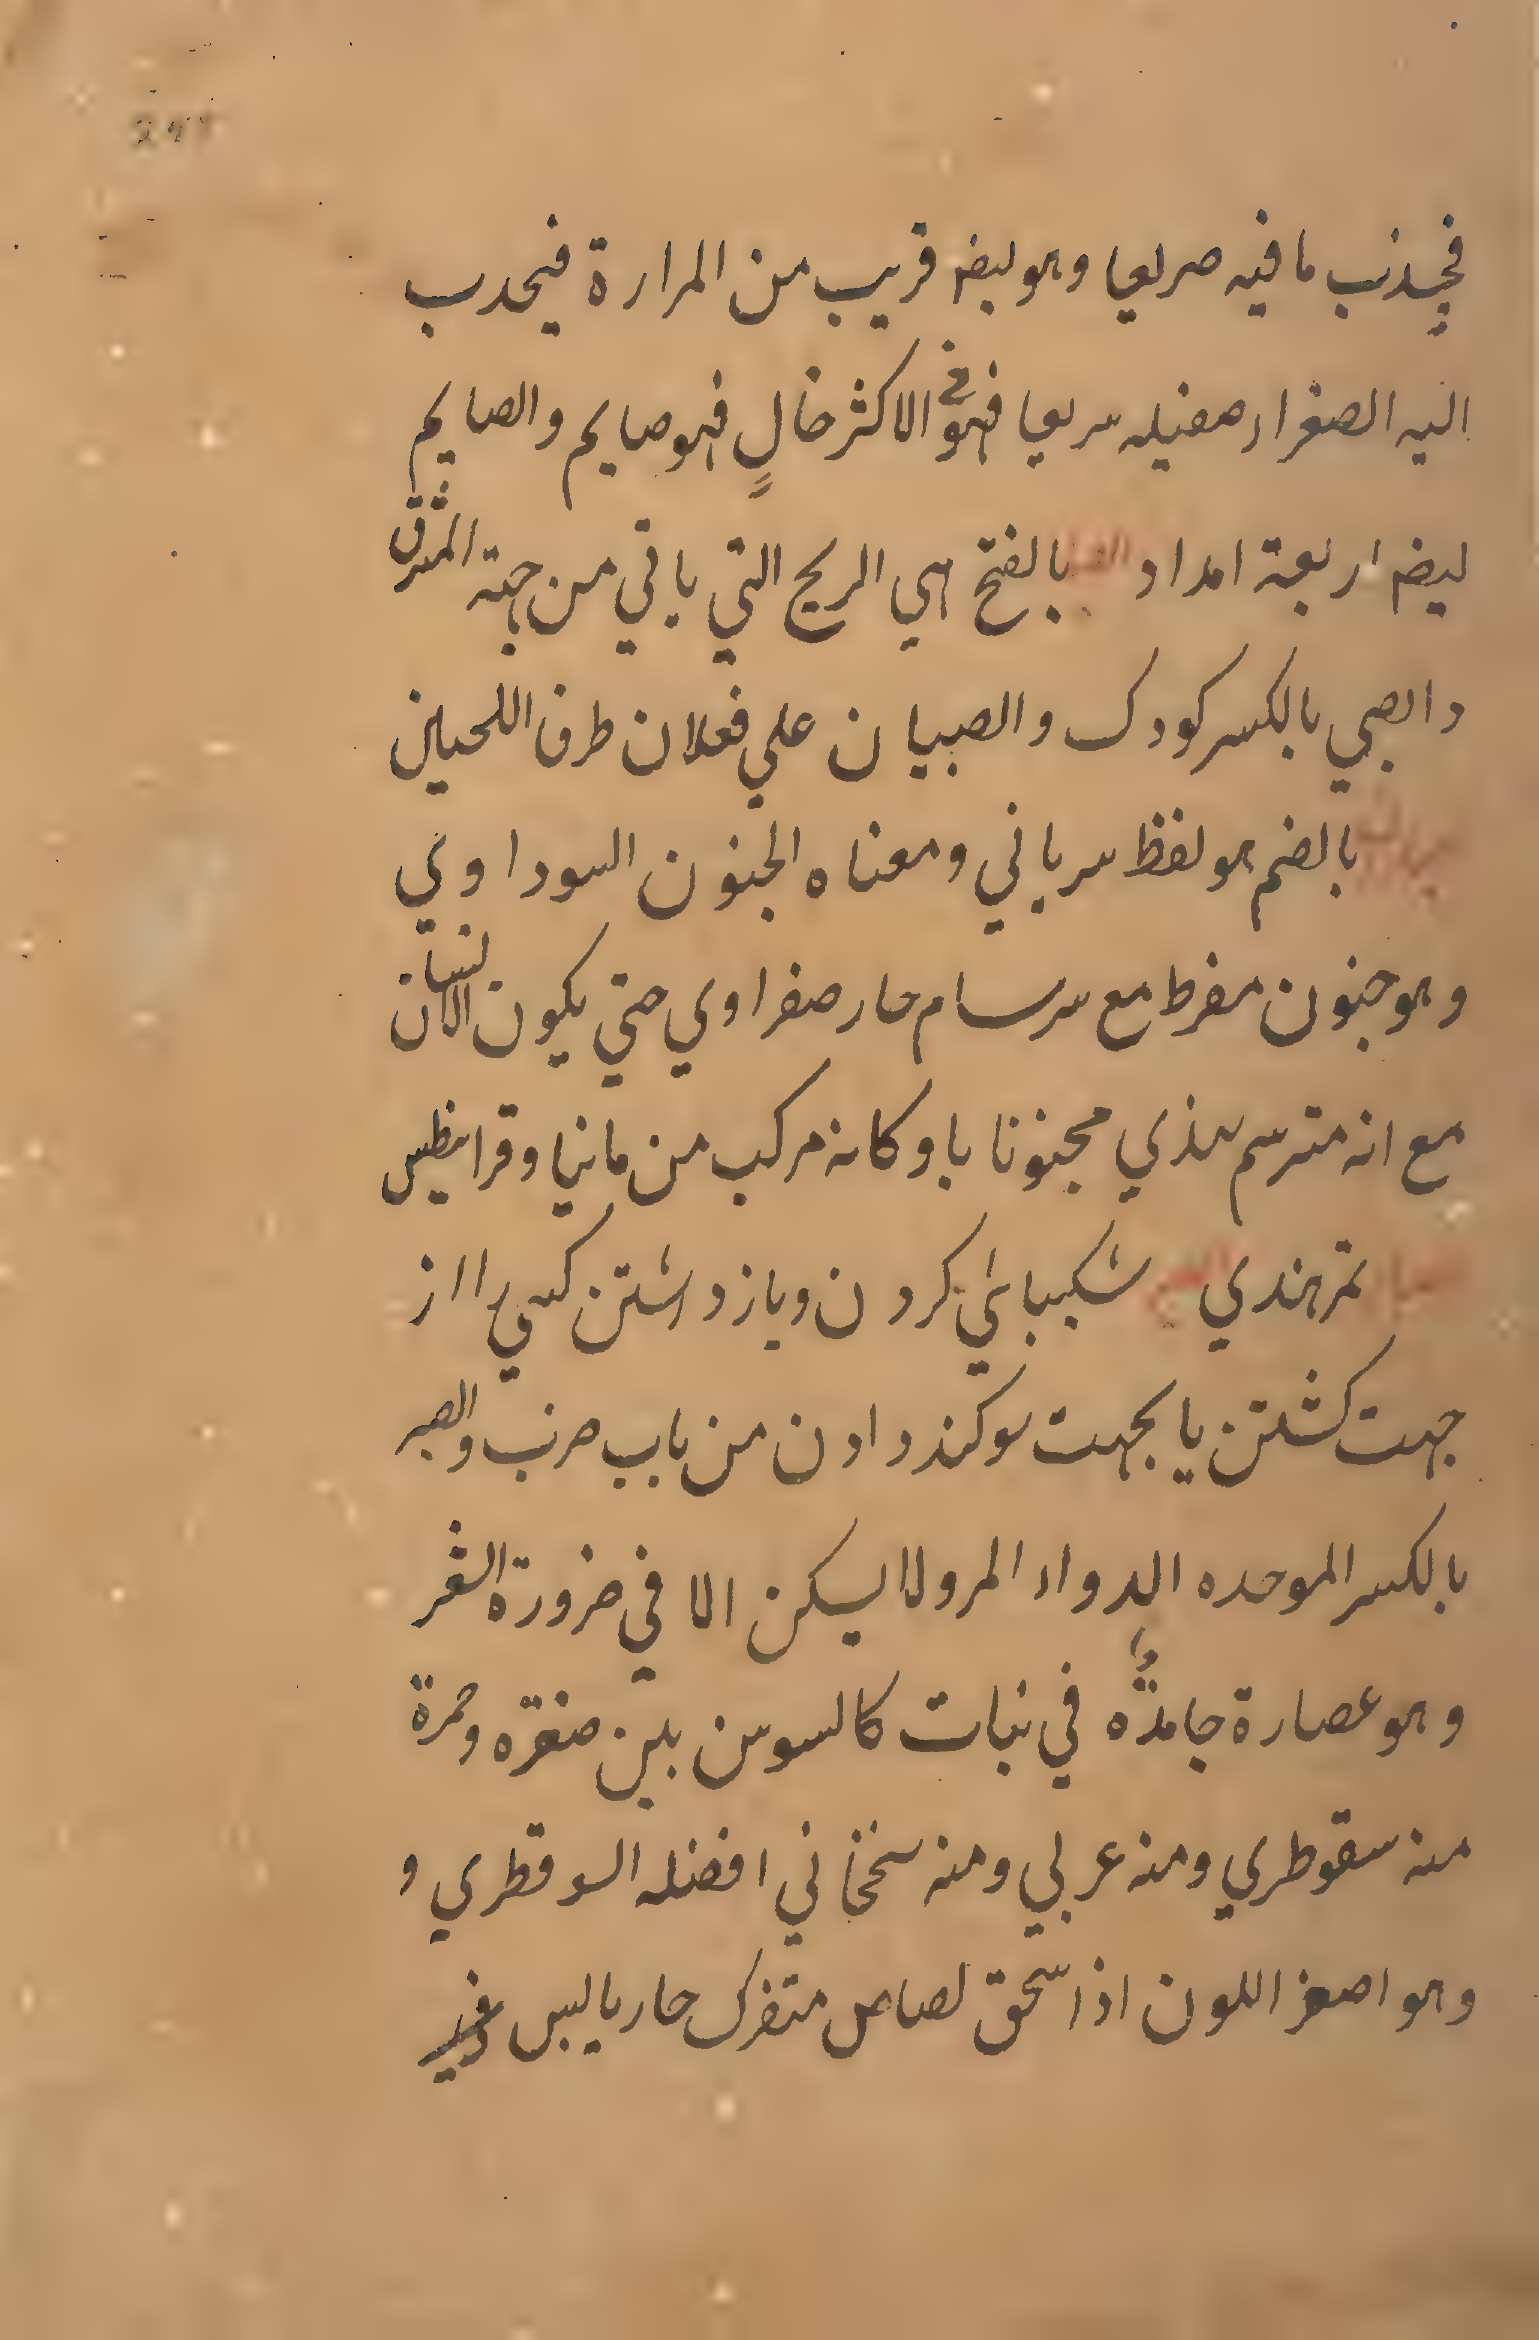 فيجذب ما فيه صريعا وهو ايضا قريب من المرارة فيحدب
اليه الصفراء صفيله سريعا فهو في الاكثر خالٍ فهو صايم والصايم
ايضا اربعة امداد بالفتح هي الريح التي ياتي من جهة المشرق
والصبي بالكسر كودك والصبيان علي فعلان طرف اللحيين
بالضم هو لفظ سرياني ومعناه الجنون السوداوي
وهو جنون مفرط مع سرسام حار صفراوي حتي يكون الانسان
مع انه مترسم يهذي مجنونا با وكانه مركب من مانيا وقرانيطس
تمر هندي شكيبائي كردن وبازداشتن كسي را از
جهت كشتن يا بجهت سوكند دادن من باب ضرب والصبر
بالكسر الموحده الدواء المر ولا يسكن الا في ضرورة الشعر
وهو عصارة جامدة في نبات كالسوسن بين صفرة وحمرة
منه سقوطري ومنه عربي ومنه سمنجاني افضله السوقطري و
وهو اصفر اللون اذا سحق لصاص متفرك حار يابس